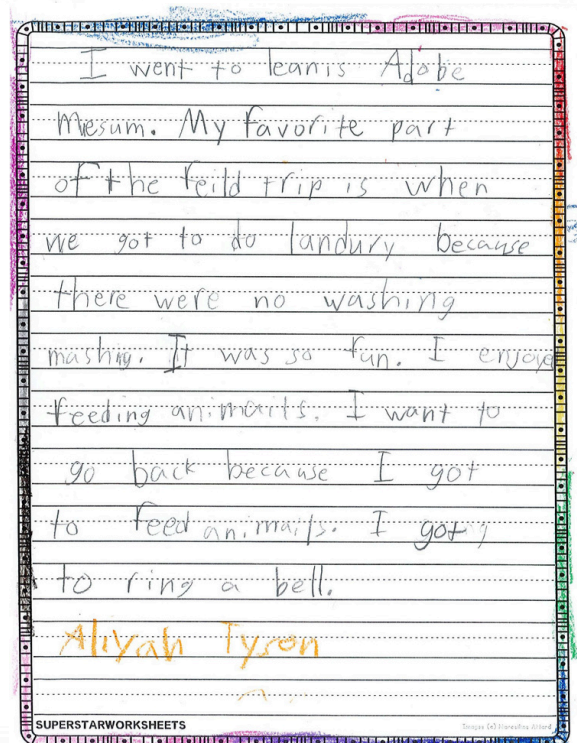 I went to leanis Adobe
Mesum. My favorite part
of the feild trip is when
we got to do landury because
there were no washing
mashing. It was so fun. I enjoye
feeding animails. I want to
go back because I got
to feed animails. I got
to ring a bell.
Aliyah Tyson
SUPERSTARWORKSHEETS